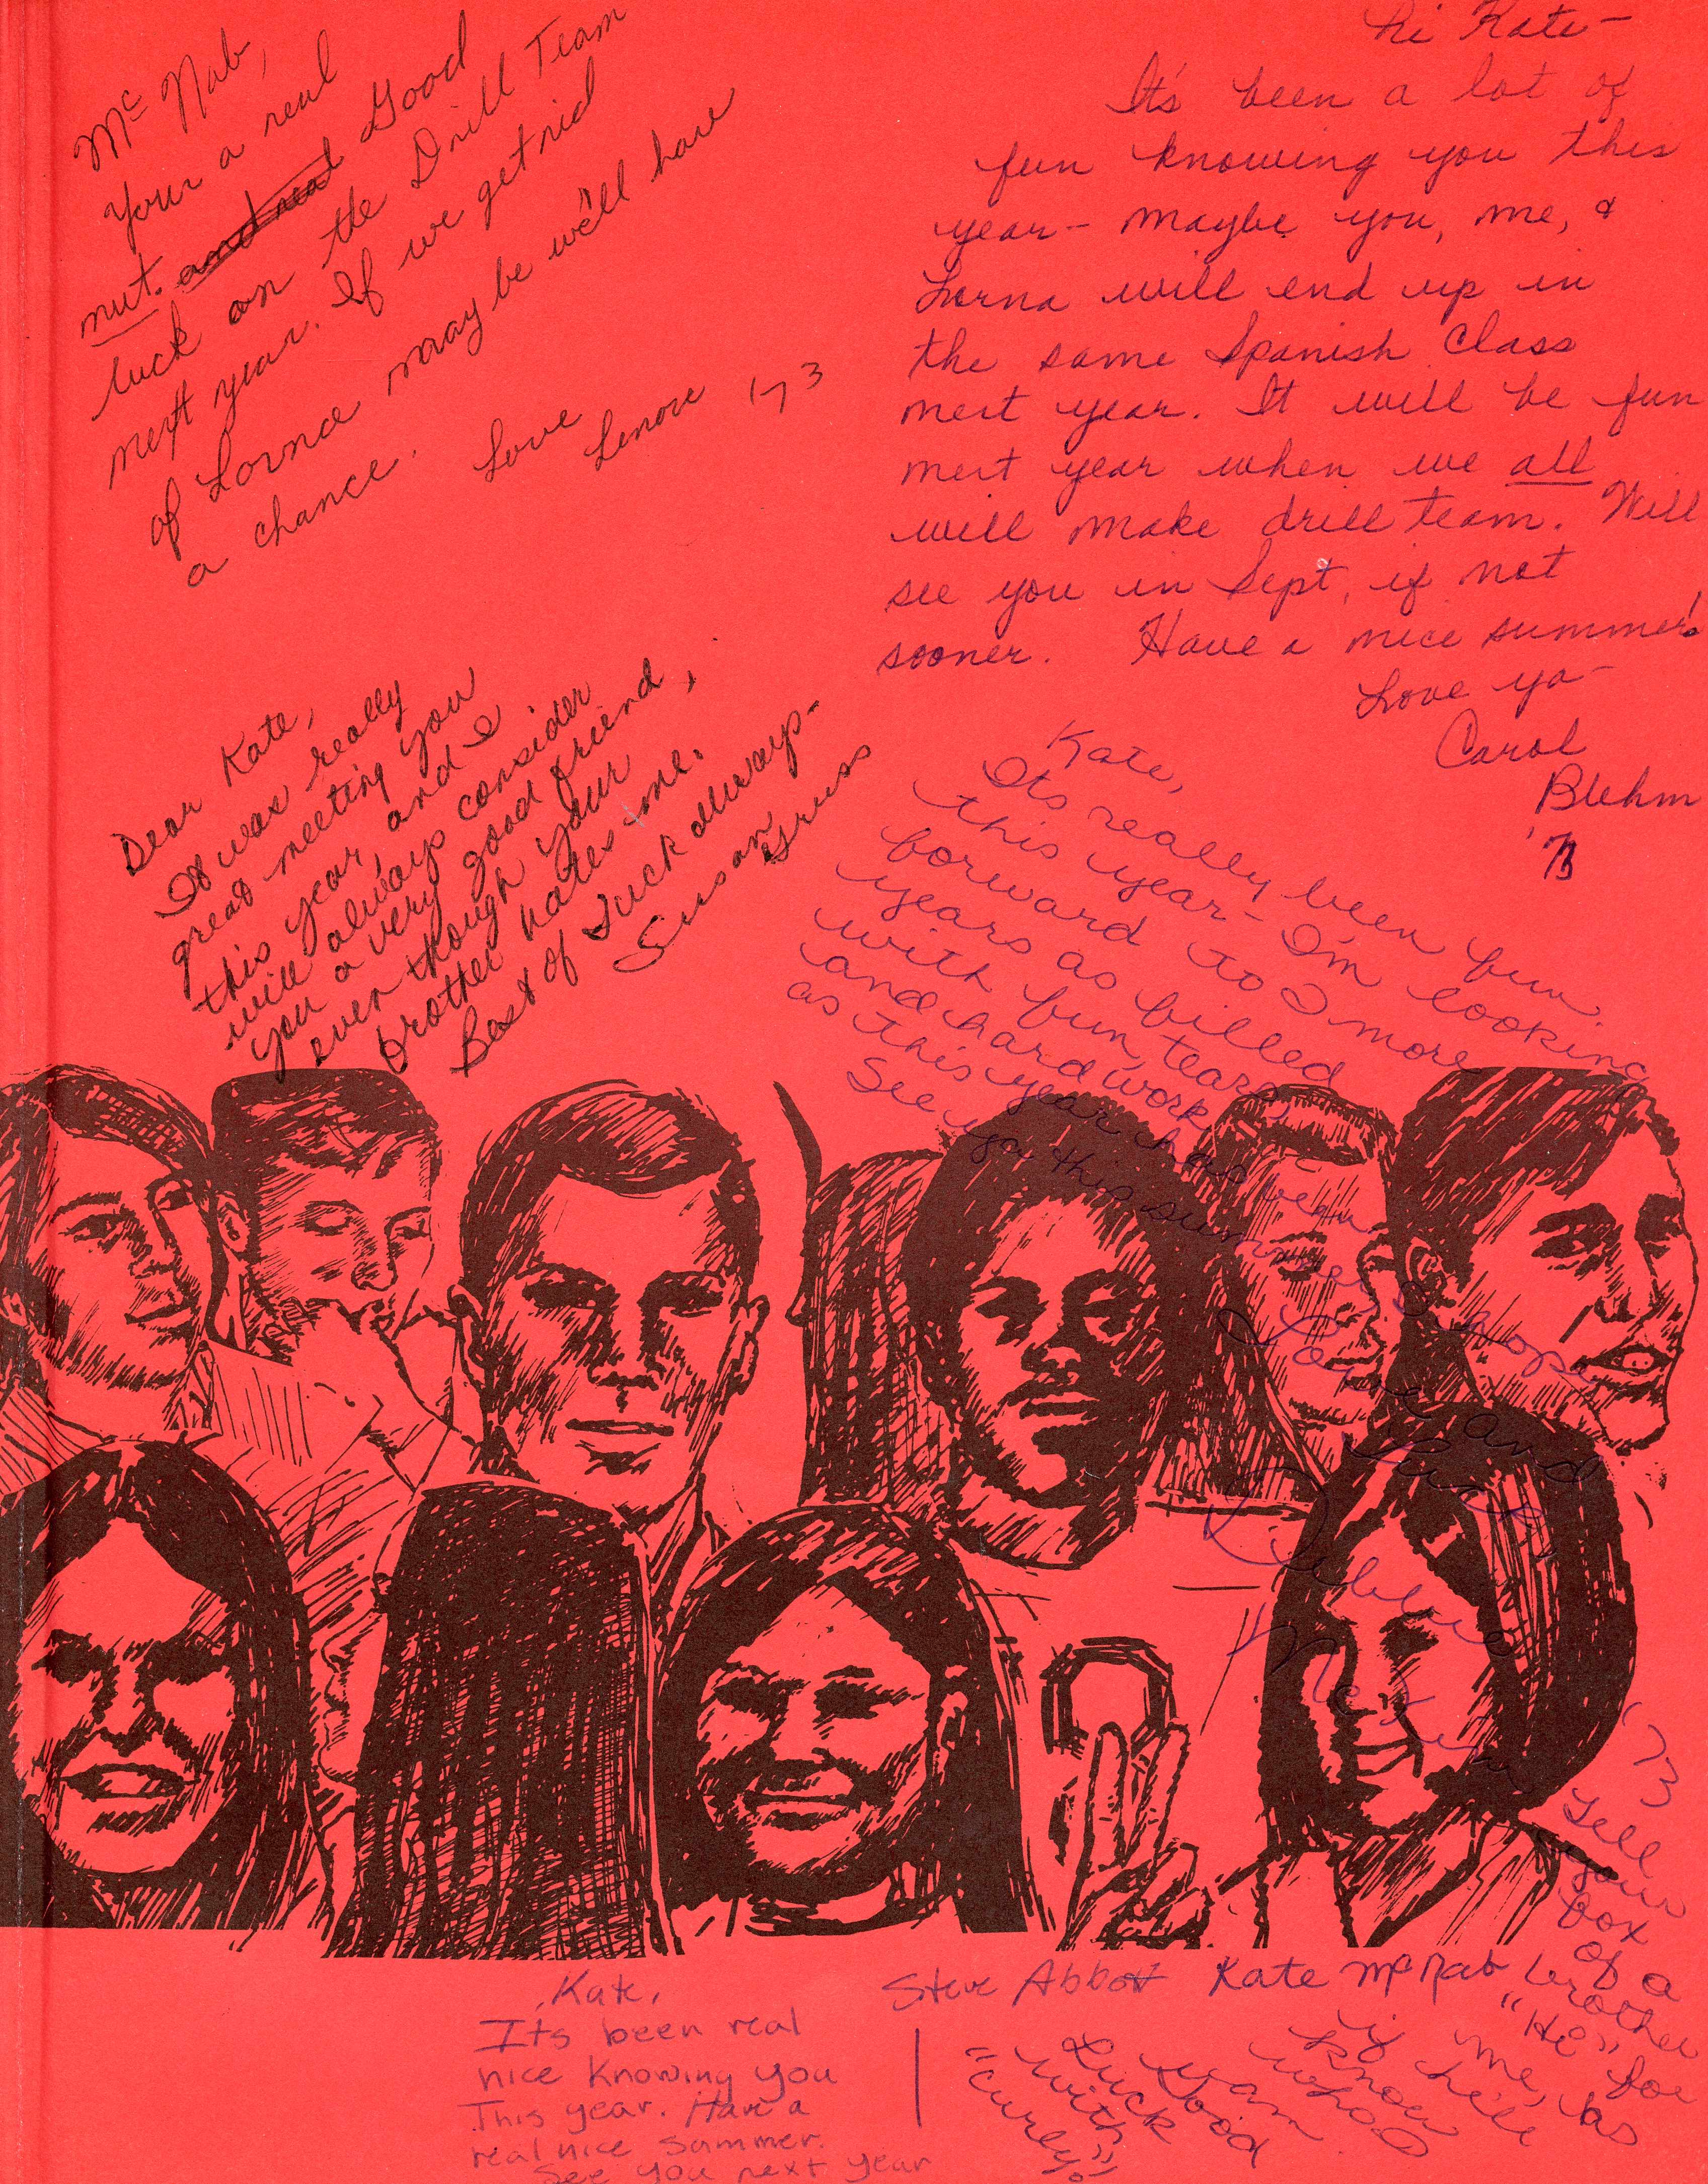 Mc Nab,
Your a real
nut. and real Good
luck on the Drill Team
next year. If we get rid
of Lornce may be we'll have
a chance.
Love
Lenore 173
Hi Kate-
It's been a lot of
fun knowing you this
year- maybe you, me, &
Lorna will end up in
the same Spanish Class
next year. It will be fun
next year when we all
will make drill team. Will
see you in Sept, if not
sooner. Have a nice summer!
Love ya-
Carol
Blehm
'73
Dear Kate,
It was really
great meeting you
this year, and I
will always consider
you a very good friend,
even though your
brother hates me.
Best of luck always-
Susan Gruss
Kate,
Its really been fun
this year- I'm looking
forward to 2 more
years as filled
with fun, tears,
and hard work
as this year has been
See ya this summer I hope
Love and
Luck,
Debbie
'73
Tell
your
fox
of a
brother
"Hi" for
me, as
if he'll
know
who
wam.
Good
Luck
with
"Curly"
Steve Abbott Kate McNab
Kate,
Its been real
nice knowing you
This year. Have a
real nice summer.
See you next year